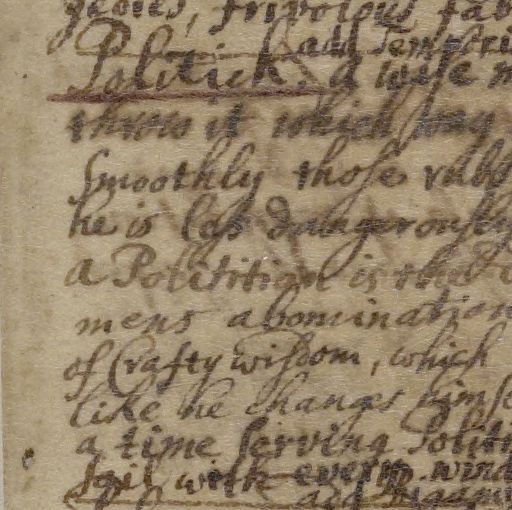 geries, frivolous fab
add Tempori
Politick. a wise m
throw it which way
smoothly those rubb
he is less dangerously
a Polititian is the
mens abomination
of Crafty wisdom, which
like he changes himse
a time serving Politi
sail with every wind
add